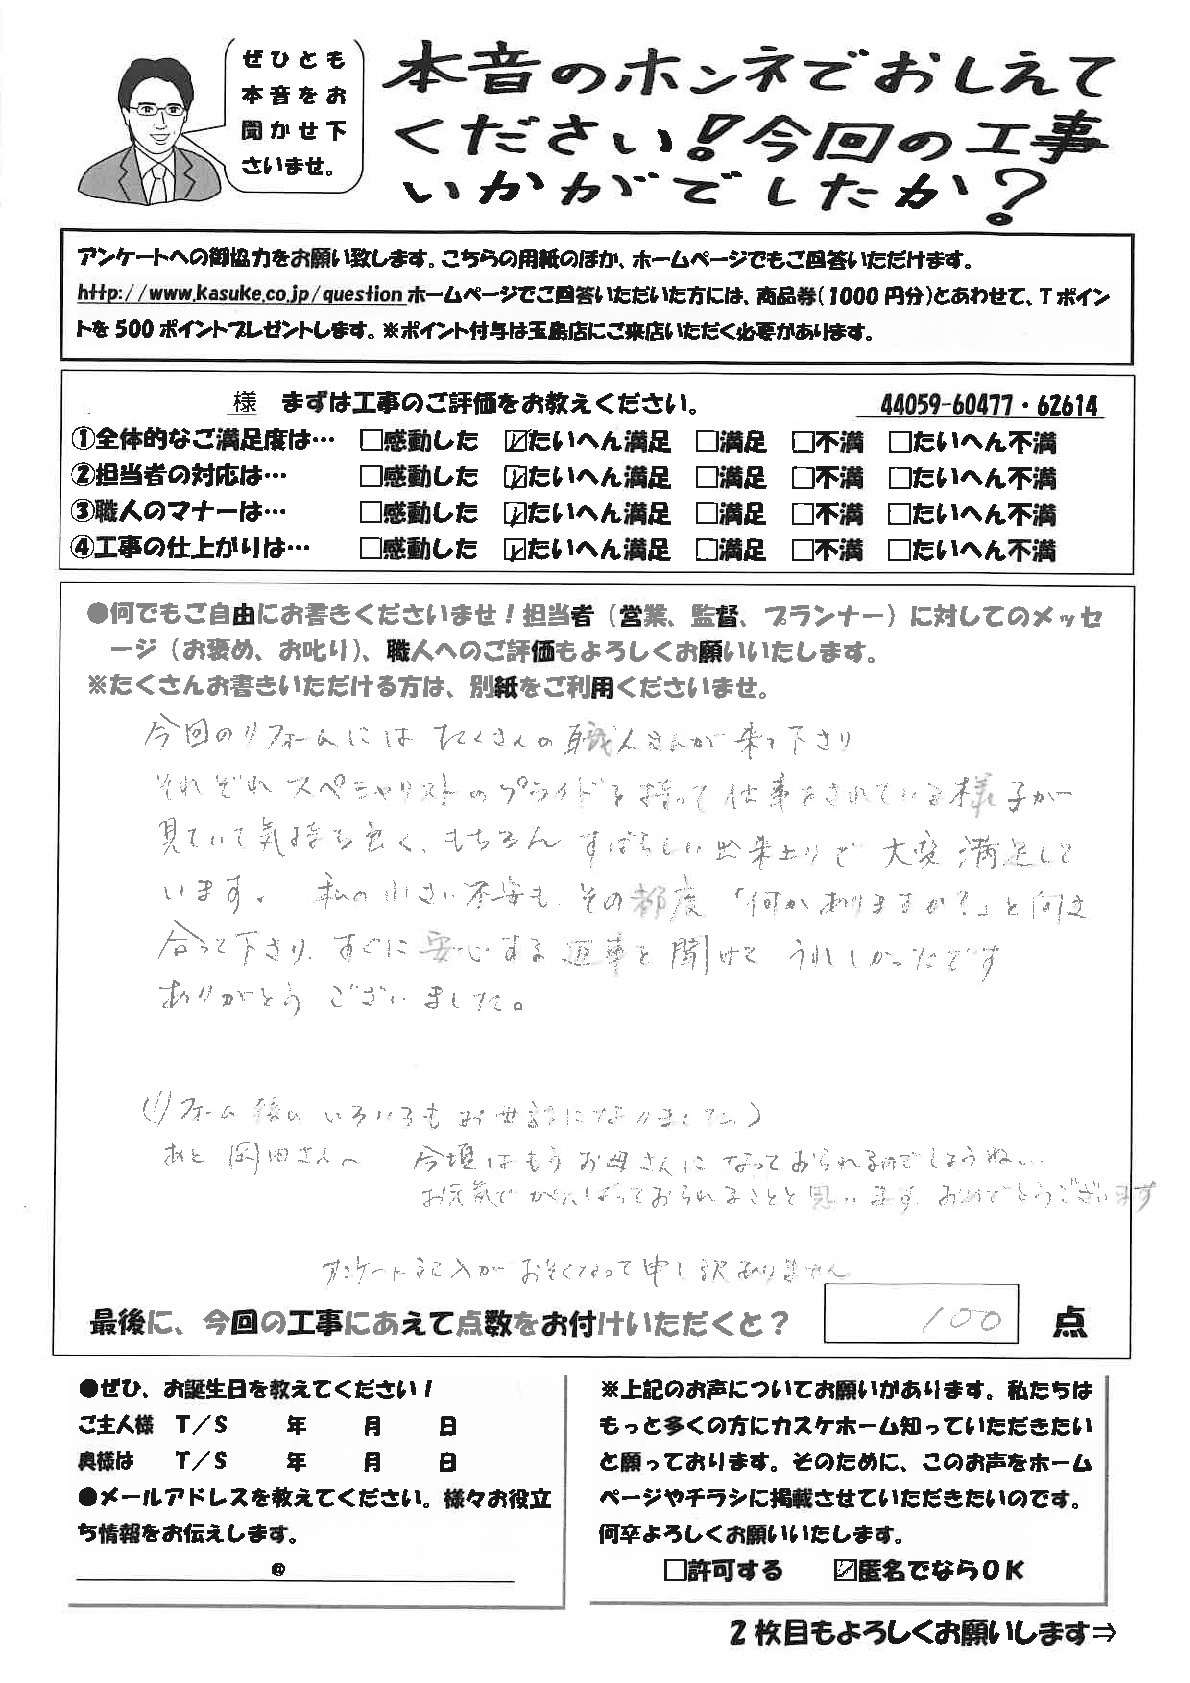 ぜひとも
本音をお
聞かせ下
さいませ。
本音のホンネでおしえて
ください!今回の工事
いかがでしたか?
アンケートへの御協力をお願い致します。こちらの用紙のほか、ホームページでもご回答いただけます。
http://www.kasuke.co.jp/question ホームページでご回答いただいた方には、商品券(1000円分)とあわせて、Tポイン
トを500ポイントプレゼントします。※ポイント付与は玉島店にご来店いただく必要があります。
様 まずは工事のご評価をお教えください。 44059-60477・62614
①全体的なご満足度は… □感動した ☑たいへん満足 □満足 □不満 □たいへん不満
②担当者の対応は… □感動した ☑たいへん満足 □満足 □不満 □たいへん不満
③職人のマナーは… □感動した ☑たいへん満足 □満足 □不満 □たいへん不満
④工事の仕上がりは… □感動した ☑たいへん満足 □満足 □不満 □たいへん不満
●何でもご自由にお書きくださいませ!担当者(営業、監督、プランナー)に対してのメッセ
ージ(お褒め、お叱り)、職人へのご評価もよろしくお願いいたします。
※たくさんお書きいただける方は、別紙をご利用くださいませ。
今回のリフォームには たくさんの職人さんが来て下さり
それぞれスペシャリストのプライドを持って仕事をされている様子が
見ていて気持ち良く、もちろん すばらしい出来上りで 大変満足して
います。 私の小さい不安も その都度「何かありますか?」と向き
合って下さり、すぐに安心する返事を聞けて うれしかったです
ありがとう ございました。
(リフォーム後の いろいろも お世話になりました。)
あと 岡田さんへ 今頃はもうお母さんになっておられるのでしょうね…
お元気で がんばっておられることと思います おめでとうございます
アンケート記入が おそくなって申し訳ありません
最後に、今回の工事にあえて点数をお付けいただくと? 100 点
●ぜひ、お誕生日を教えてください!
ご主人様 T/S 年 月 日
奥様は T/S 年 月 日
●メールアドレスを教えてください。様々お役立
ち情報をお伝えします。
@
※上記のお声についてお願いがあります。私たちは
もっと多くの方にカスケホーム知っていただきたい
と願っております。そのために、このお声をホーム
ページやチラシに掲載させていただきたいのです。
何卒よろしくお願いいたします。
□許可する ☑匿名でならOK
2枚目もよろしくお願いします⇒